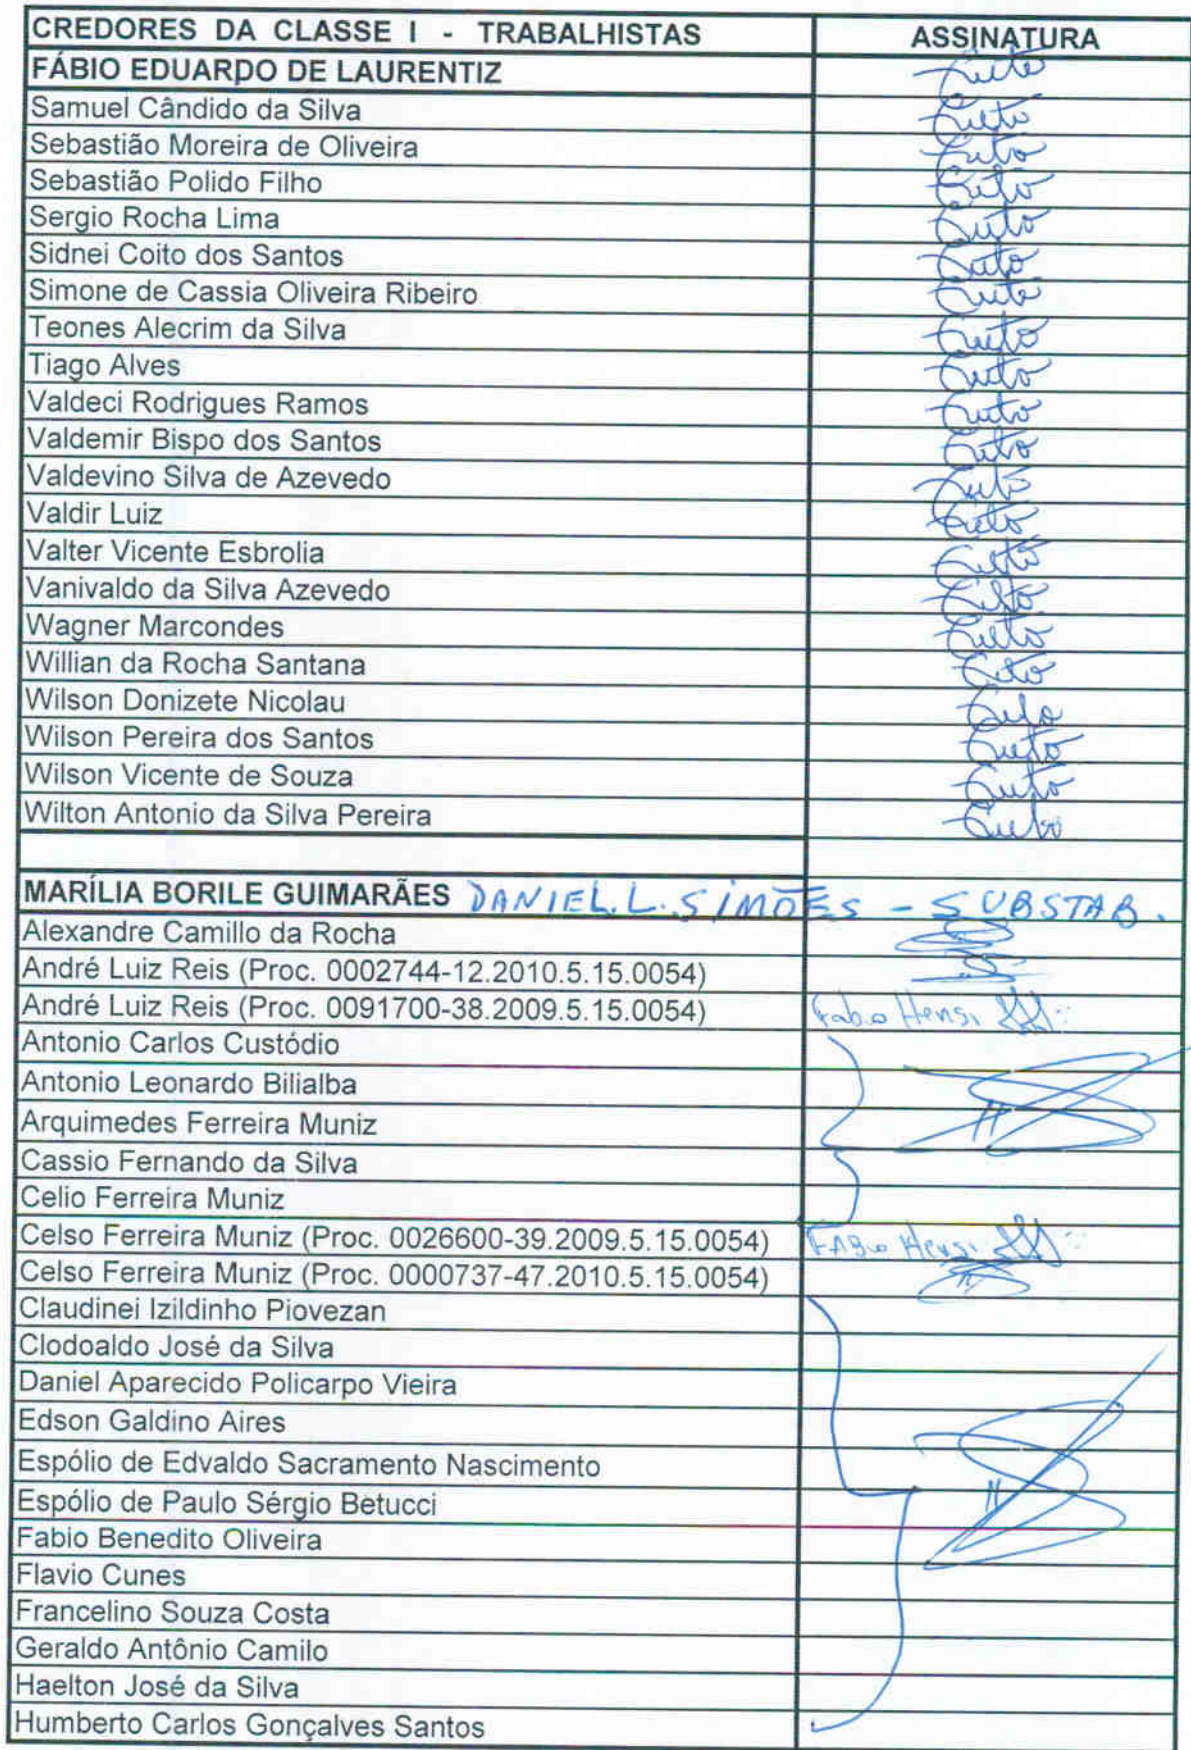 CREDORES DA CLASSE I - TRABALHISTAS ASSINATURA
FÁBIO EDUARDO DE LAURENTIZ
Samuel Cândido da Silva
Sebastião Moreira de Oliveira
Sebastião Polido Filho
Sergio Rocha Lima
Sidnei Coito dos Santos
Simone de Cassia Oliveira Ribeiro
Teones Alecrim da Silva
Tiago Alves
Valdeci Rodrigues Ramos
Valdemir Bispo dos Santos
Valdevino Silva de Azevedo
Valdir Luiz
Valter Vicente Esbrolia
Vanivaldo da Silva Azevedo
Wagner Marcondes
Willian da Rocha Santana
Wilson Donizete Nicolau
Wilson Pereira dos Santos
Wilson Vicente de Souza
Wilton Antonio da Silva Pereira
MARÍLIA BORILE GUIMARÃES DANIEL.L.SIMÕES - SUBSTAB.
Alexandre Camillo da Rocha
André Luiz Reis (Proc. 0002744-12.2010.5.15.0054)
André Luiz Reis (Proc. 0091700-38.2009.5.15.0054) Fabio
Antonio Carlos Custódio
Antonio Leonardo Bilialba
Arquimedes Ferreira Muniz
Cassio Fernando da Silva
Celio Ferreira Muniz
Celso Ferreira Muniz (Proc. 0026600-39.2009.5.15.0054) FABio
Celso Ferreira Muniz (Proc. 0000737-47.2010.5.15.0054)
Claudinei Izildinho Piovezan
Clodoaldo José da Silva
Daniel Aparecido Policarpo Vieira
Edson Galdino Aires
Espólio de Edvaldo Sacramento Nascimento
Espólio de Paulo Sérgio Betucci
Fabio Benedito Oliveira
Flavio Cunes
Francelino Souza Costa
Geraldo Antônio Camilo
Haelton José da Silva
Humberto Carlos Gonçalves Santos